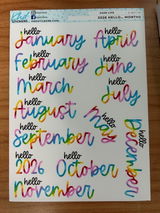 2026 HELLO... MONTHS
hello
January
hello
April
hello
February
hello
June
hello
March
hello
July
hello
August
hello
May
hello
September
hello
December
hello
2026
hello
October
hello
November